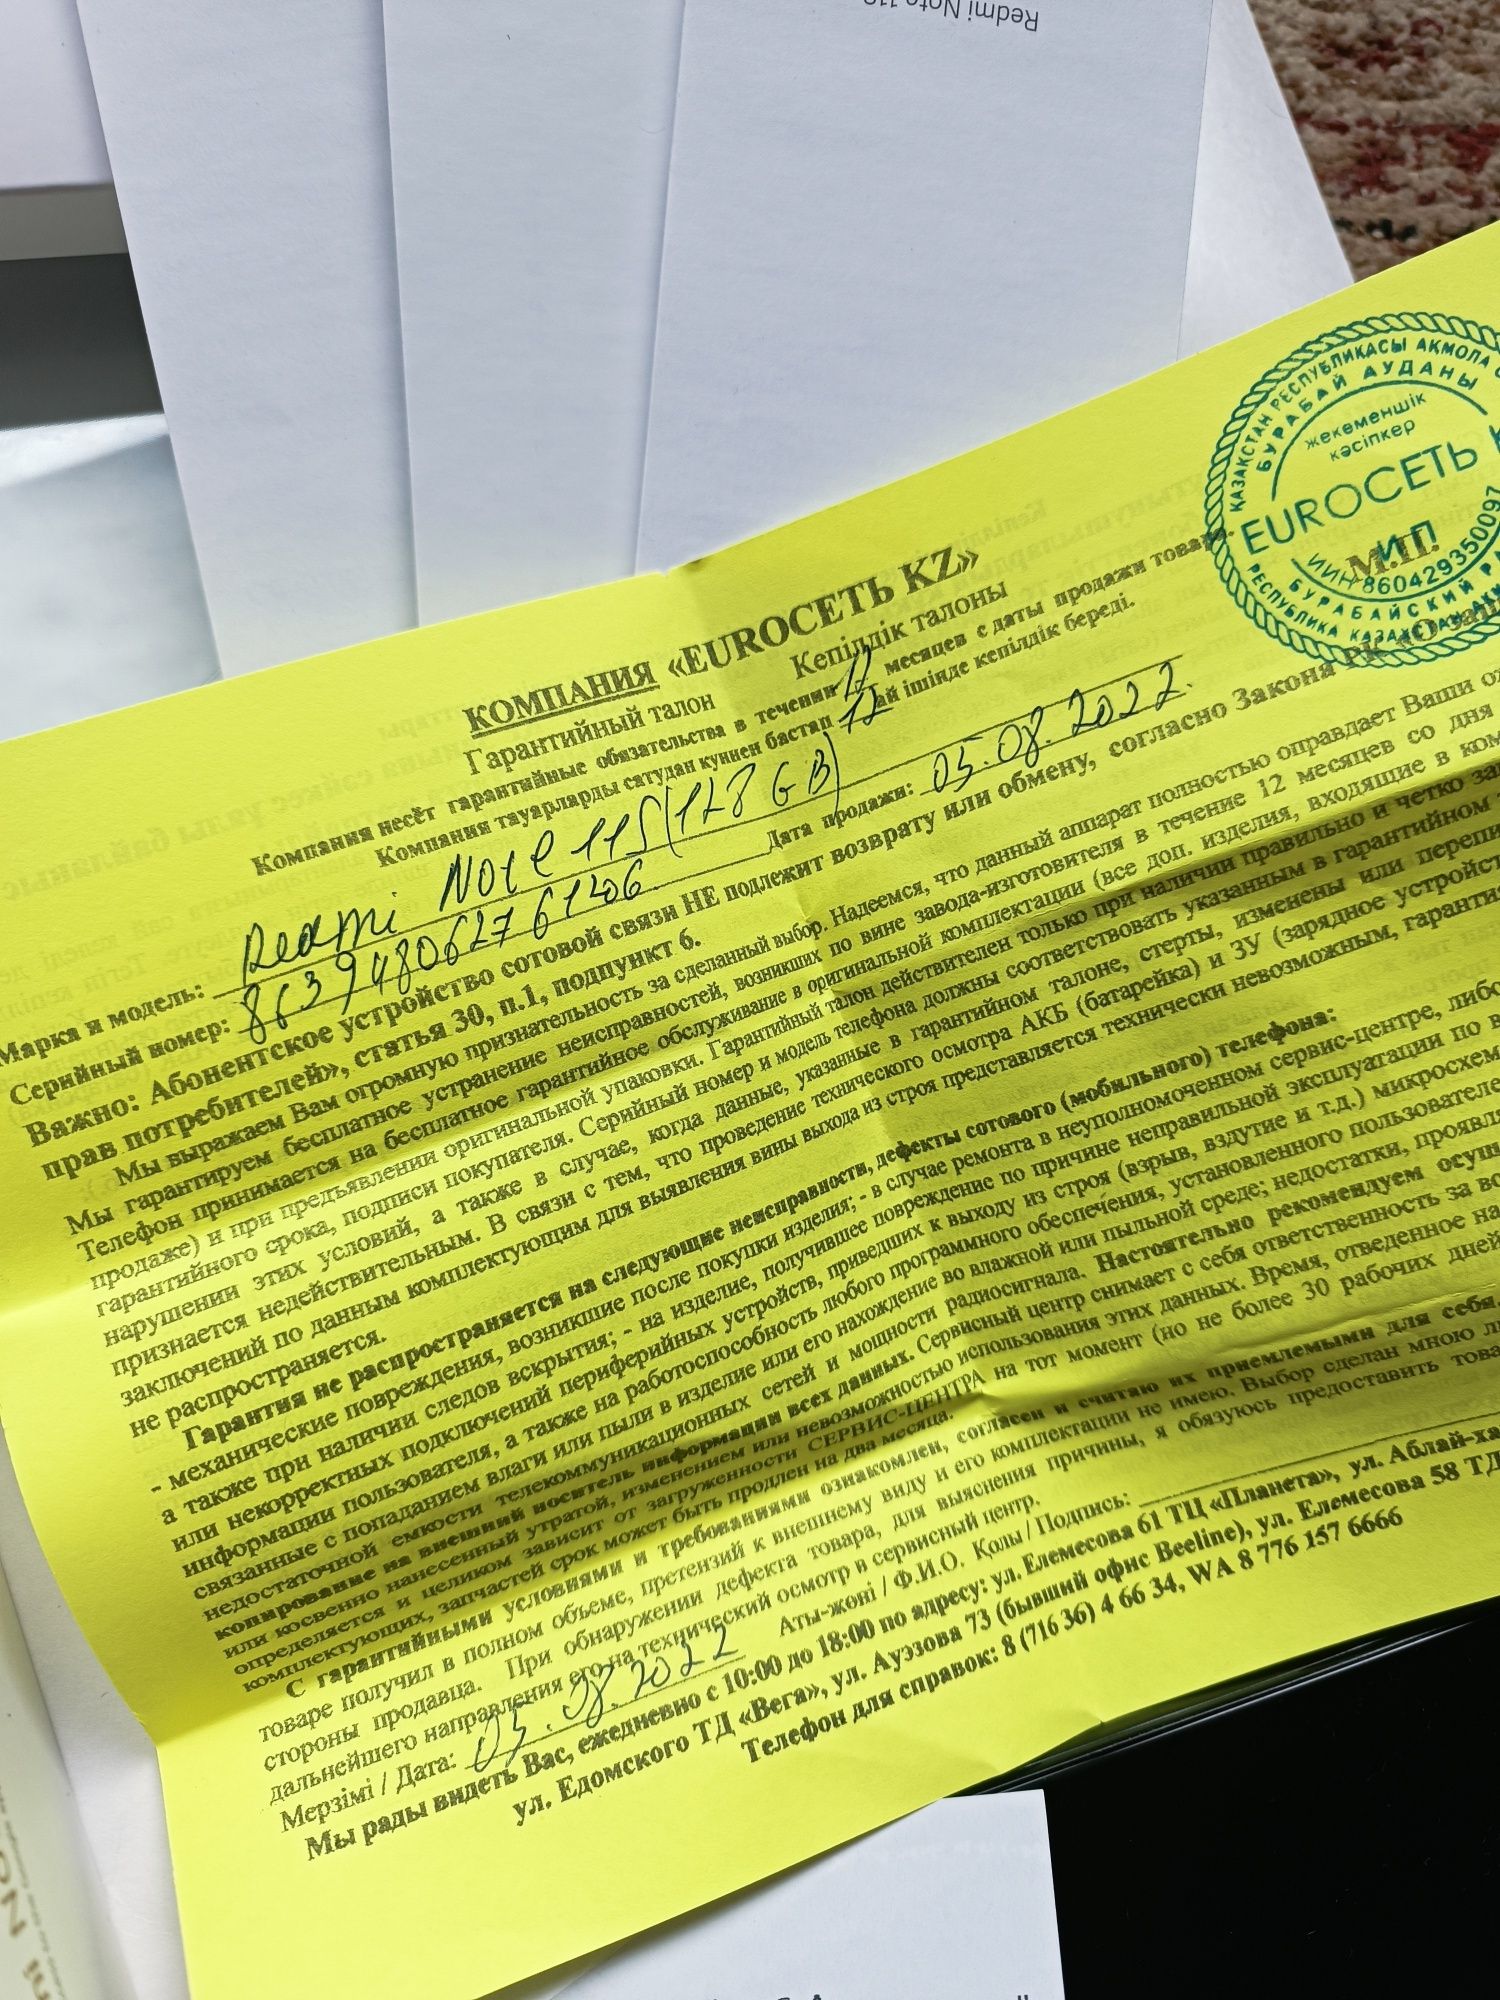 Redmi Note 11S
ҚАЗАҚСТАН РЕСПУБЛИКАСЫ АҚМОЛА
БУРАБАЙ АУДАНЫ
жекеменшік
кәсіпкер
EUROСЕТЬ
ИП
М.П.
ИИН 860429350097
БУРАБАЙСКИЙ
РЕСПУБЛИКА КАЗАХСТАН
КОМПАНИЯ «EUROСЕТЬ KZ»
Гарантийный талон Кепілдік талоны
Компания несёт гарантийные обязательства в течении 12 месяцев с даты продажи товара.
Компания тауарларды сатудан куннен бастап 12 ай ішінде кепілдік береді.
Марка и модель: Redmi Note 11S (128 GB)
Серийный номер: 863948062761206 Дата продажи: 05.08.2022.
Важно: Абонентское устройство сотовой связи НЕ подлежит возврату или обмену, согласно Закона РК «О
прав потребителей», статья 30, п.1, подпункт 6.
Мы выражаем Вам огромную признательность за сделанный выбор. Надеемся, что данный аппарат полностью оправдает Ваши
Мы гарантируем бесплатное устранение неисправностей, возникших по вине завода-изготовителя в течение 12 месяцев со дня
Телефон принимается на бесплатное гарантийное обслуживание в оригинальной комплектации (все доп. изделия, входящие в
продаже) и при предъявлении оригинальной упаковки. Гарантийный талон действителен только при наличии правильно и четко
гарантийного срока, подписи покупателя. Серийный номер и модель телефона должны соответствовать указанным в гарантийном
нарушении этих условий, а также в случае, когда данные, указанные в гарантийном талоне, стерты, изменены или
признается недействительным. В связи с тем, что проведение технического осмотра АКБ (батарейка) и ЗУ (зарядное
заключений по данным комплектующим для выявления вины выхода из строя представляется технически невозможным,
не распространяется.
Гарантия не распространяется на следующие неисправности, дефекты сотового (мобильного) телефона:
- механические повреждения, возникшие после покупки изделия; - в случае ремонта в неуполномоченном сервис-центре, либо
а также при наличии следов вскрытия; - на изделие, получившее повреждение по причине неправильной эксплуатации
или некорректных подключений периферийных устройств, приведших к выходу из строя (взрыв, вздутие и т.д.)
информации пользователя, а также на работоспособность любого программного обеспечения, установленного
связанные с попаданием влаги или пыли в изделие или его нахождение во влажной или пыльной среде; недостатки,
недостаточной емкости телекоммуникационных сетей и мощности радиосигнала. Настоятельно рекомендуем
копирование на внешний носитель информации всех данных. Сервисный центр снимает с себя ответственность за
или косвенно нанесенный утратой, изменением или невозможностью использования этих данных. Время, отведенное на
определяется и целиком зависит от загруженности СЕРВИС-ЦЕНТРА на тот момент (но не более 30 рабочих дней
комплектующих, запчастей срок может быть продлен на два месяца.
С гарантийными условиями и требованиями ознакомлен, согласен и считаю их приемлемыми для себя,
товаре получил в полном объеме, претензий к внешнему виду и его комплектации не имею. Выбор сделан мною
стороны продавца. При обнаружении дефекта товара, для выяснения причины, я обязуюсь предоставить
дальнейшего направления его на технический осмотр в сервисный центр.
Мерзімі / Дата: 05.08.2022 Аты-жөні / Ф.И.О. Қолы / Подпись:
Мы рады видеть Вас, ежедневно с 10:00 до 18:00 по адресу: ул. Елемесова 61 ТЦ «Планета», ул. Аблай-ха
ул. Едомского ТД «Вега», ул. Ауэзова 73 (бывший офис Beeline), ул. Елемесова 58 ТД
Телефон для справок: 8 (716 36) 4 66 34, WA 8 776 157 6666